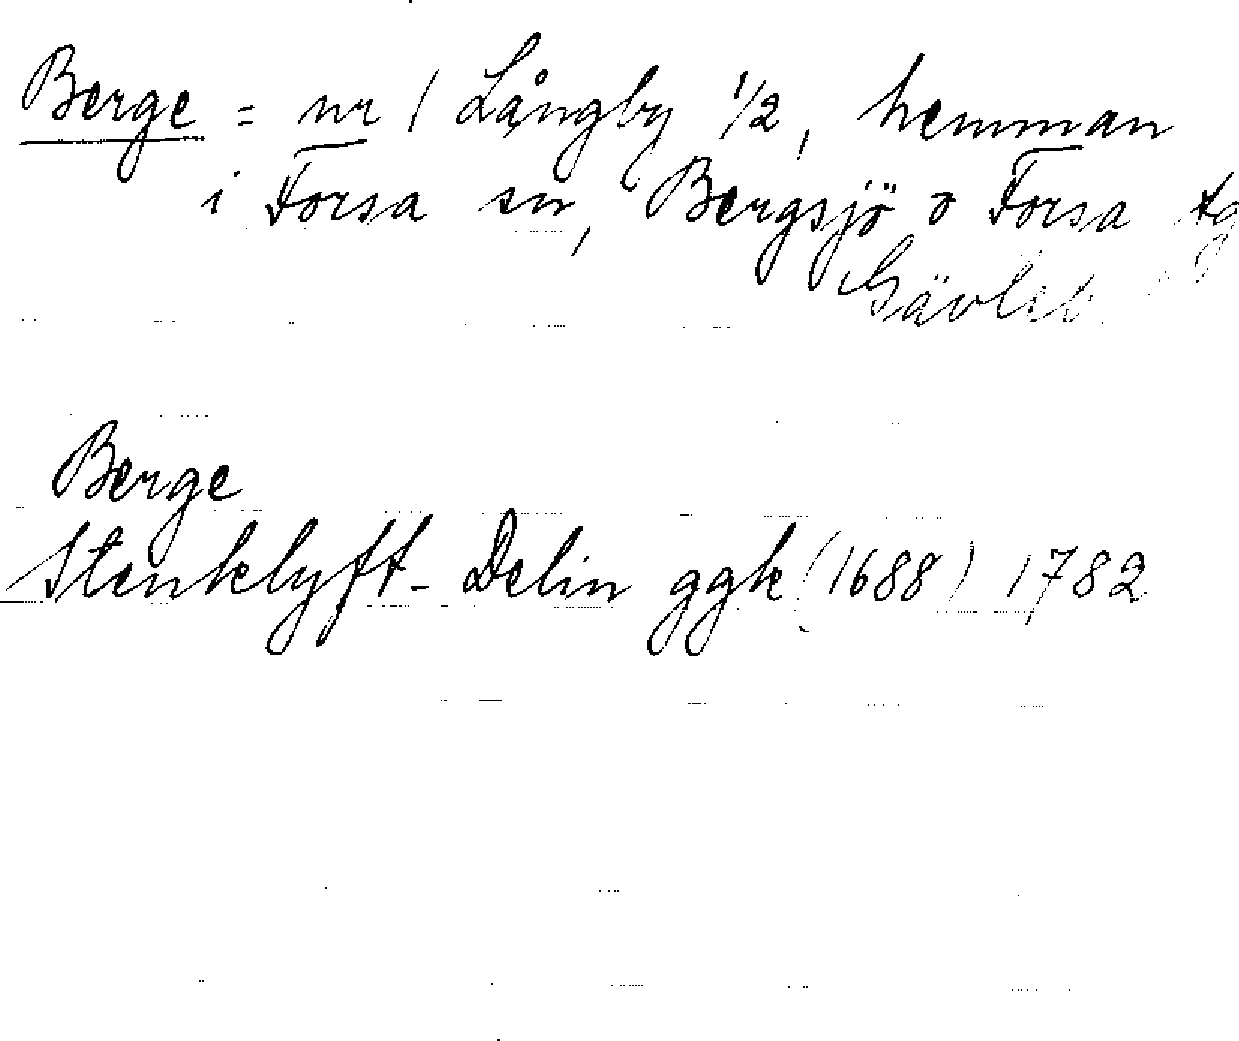 Berge = nr 1 Långby 1/2, hemman
i Forsa sn, Bergsjö o Forsa tg
Gävleb.
Berge
Stenklyft - Delin ggk (1688) 1782